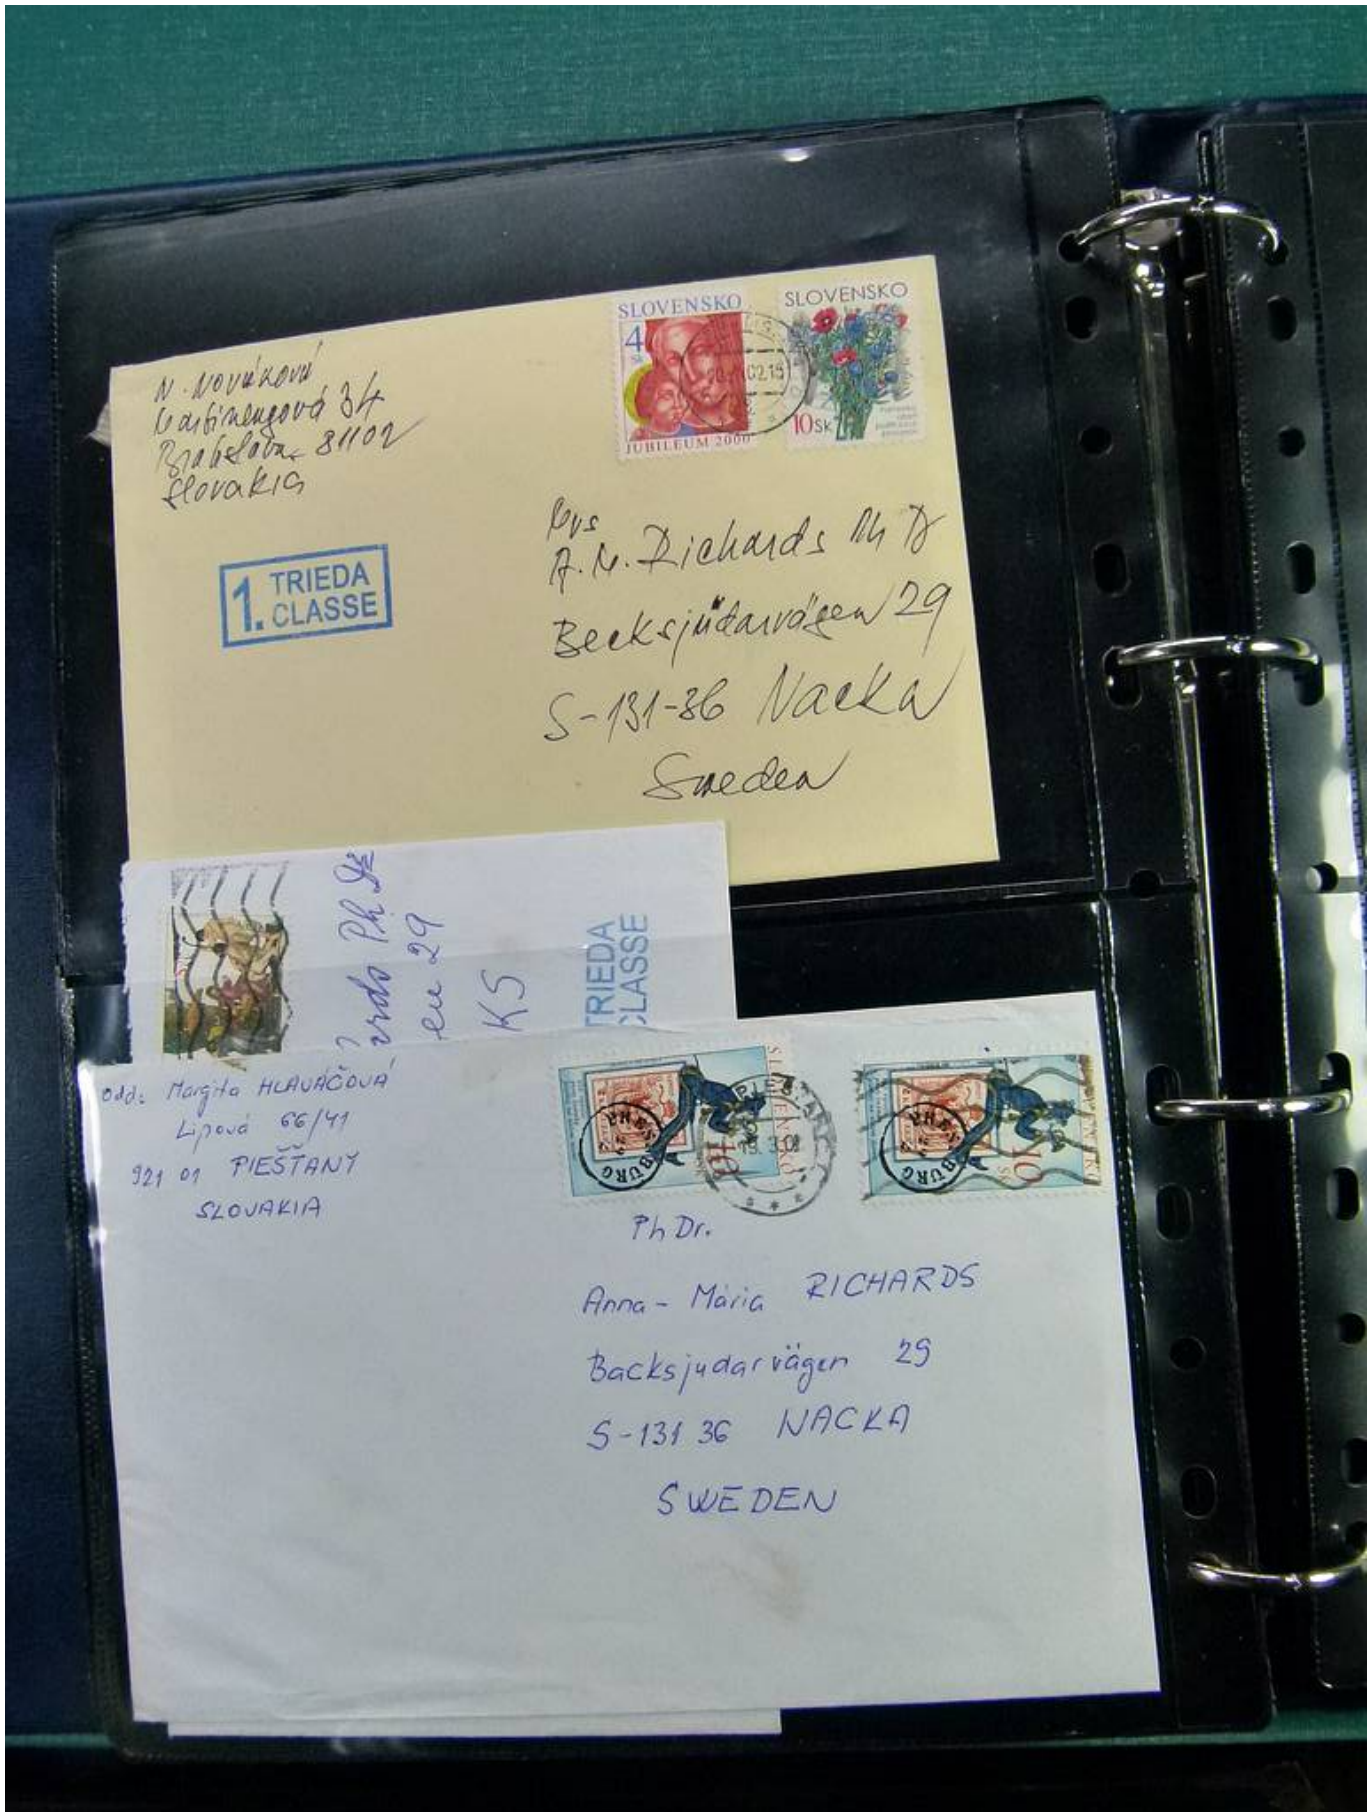 N. Nováková
Martinengová 34
Bratislava 81102
Slovakia
SLOVENSKO
4
Sk
JUBILEUM 2000
SLOVENSKO
10SK
02.15
1. TRIEDA
CLASSE
Mrs
A.M. Richards Ph D
Becksjüdarvägen 29
S-131-36 Nacka
Sweden
Ph Dr
en 29
KS
TRIEDA
CLASSE
Odd: Margita HLAVÁČOVÁ
Lipová 66/41
921 01 PIEŠŤANY
SLOVAKIA
SLOVENSKO
10
BURG
PIEŠŤANY
19. 3. 02
10
SK
BURG
PhDr.
Anna - Mária RICHARDS
Backsjudarvägen 29
S-131 36 NACKA
SWEDEN